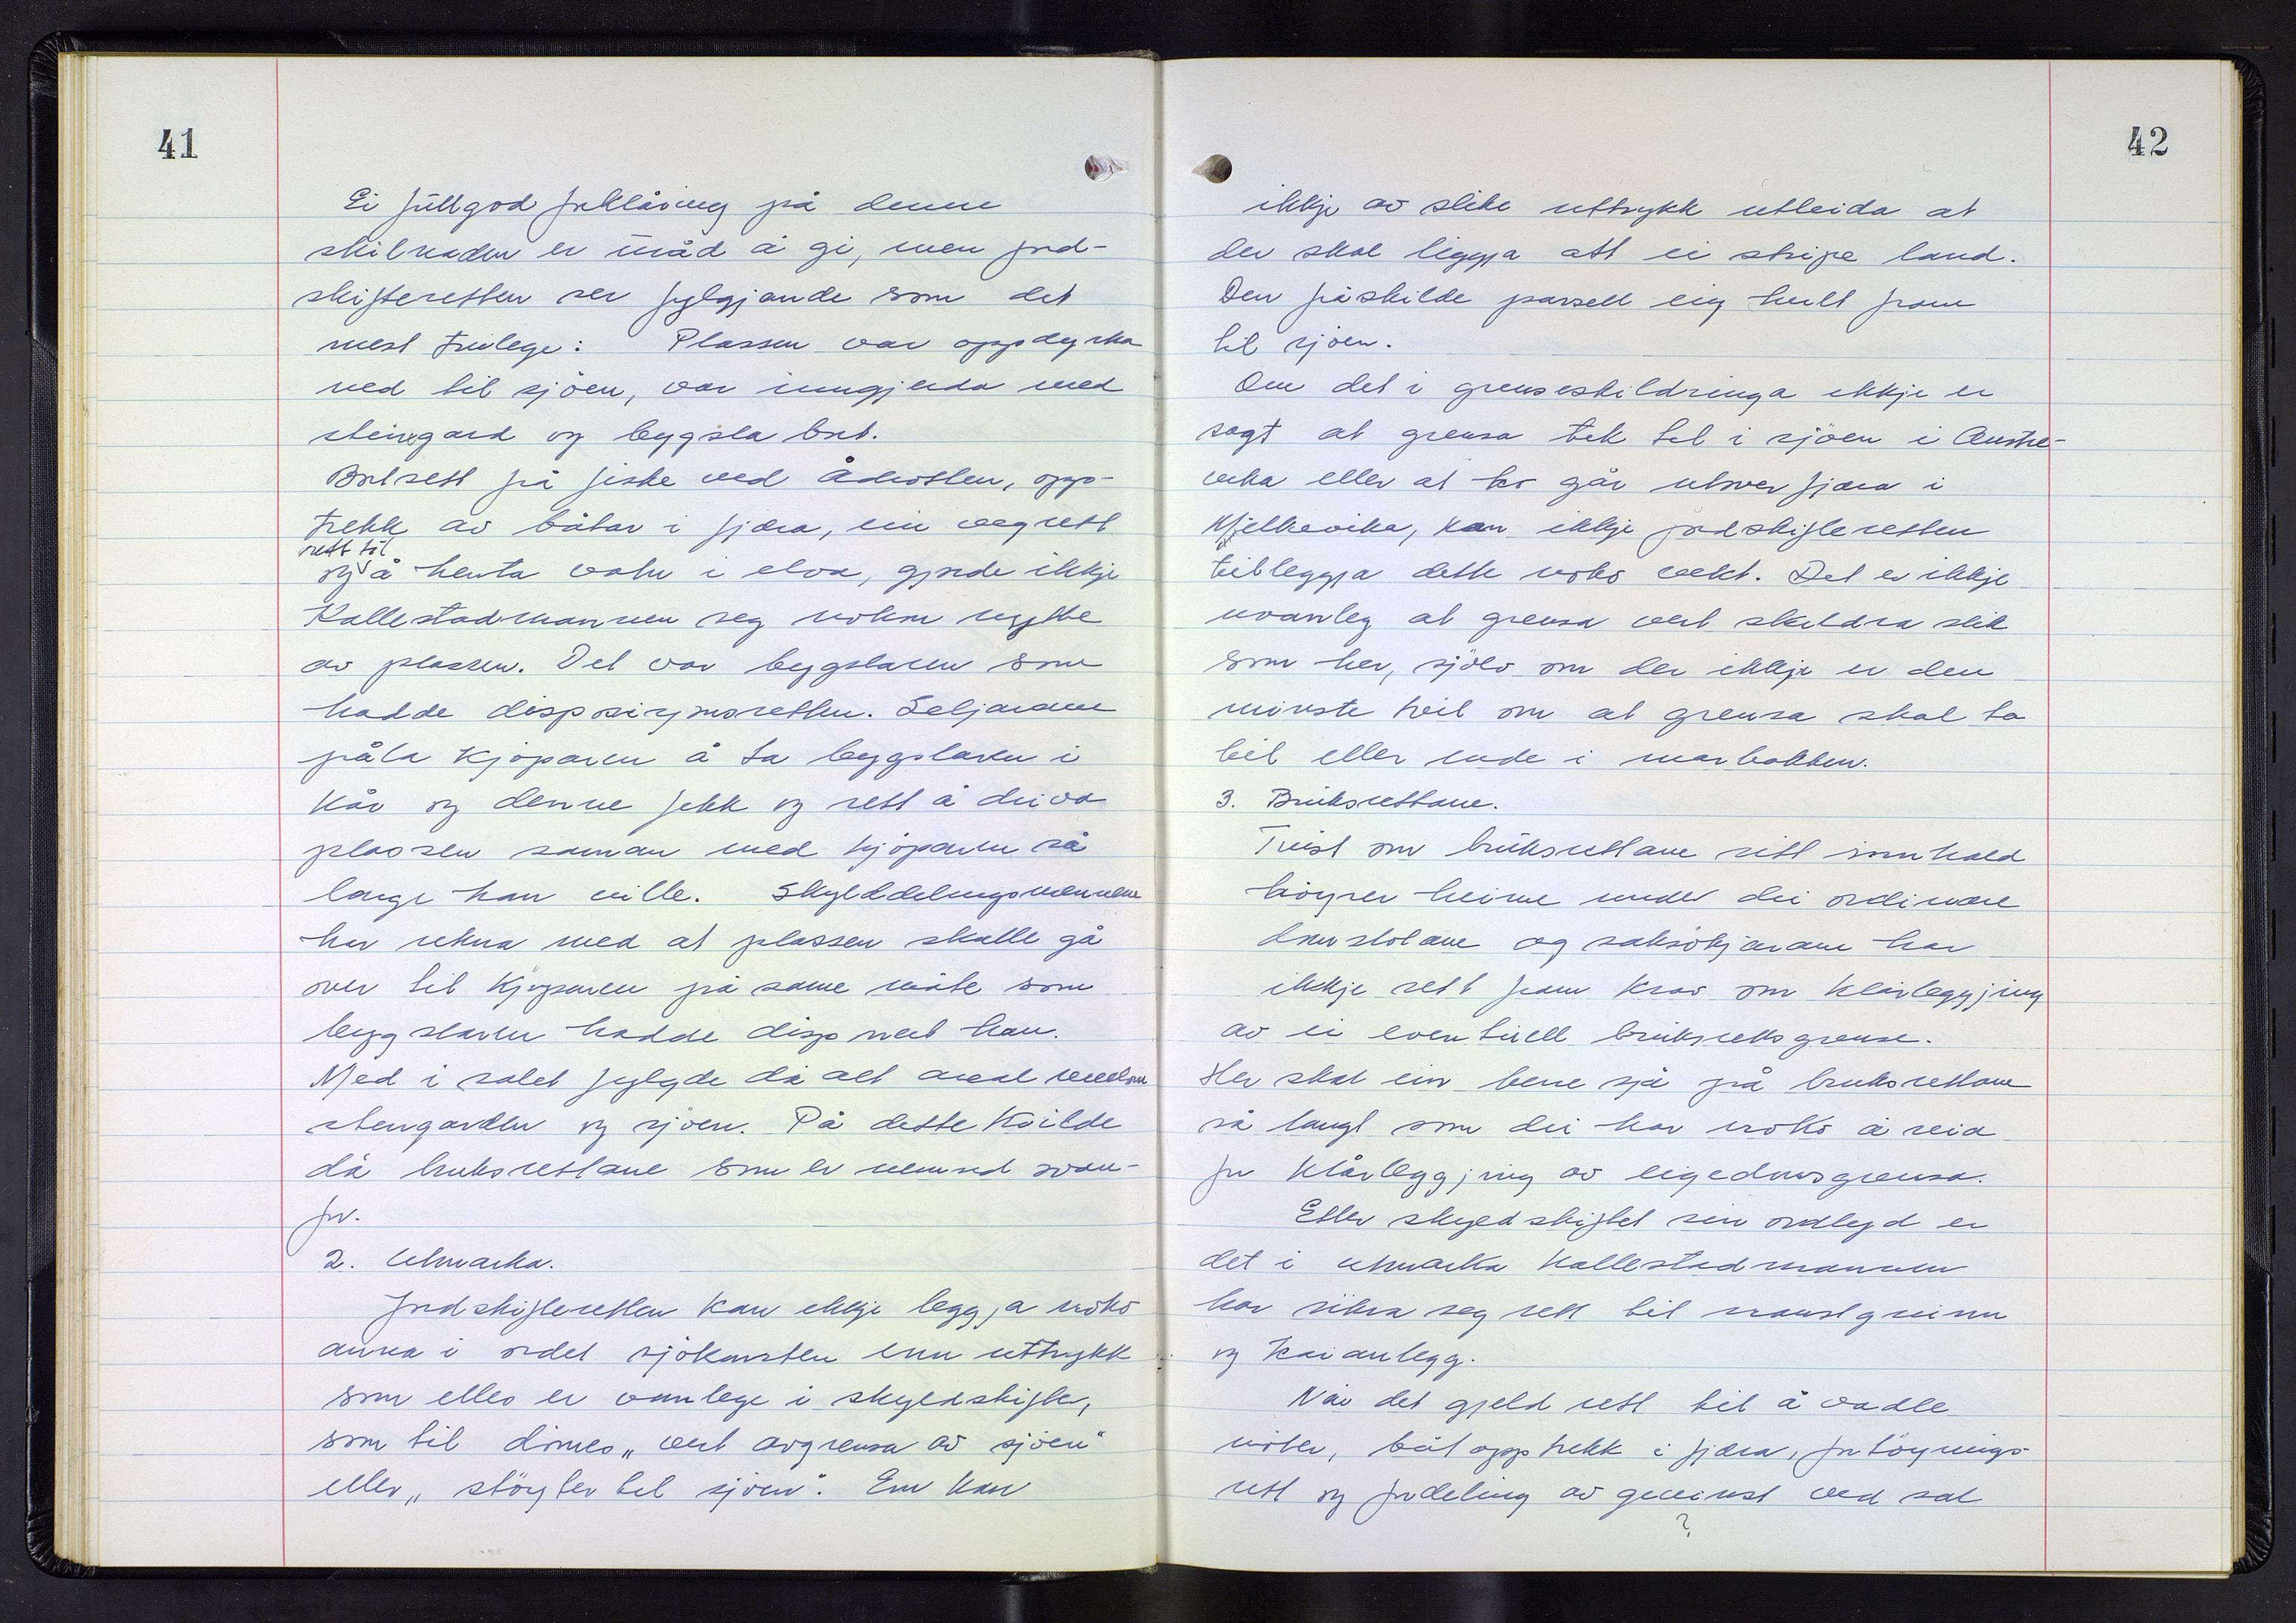 41
Ei fullgod forklåring på denne
skilnaden er uråd å gi, men jord-
skifteretten ser fylgjande som det
mest trulege: Plassen var oppdyrka
ned til sjöen, var inngjerda med
steingard og bygsla bort.
Bortsett frå fiske ved Ådrotten, opp-
trekk av båtar i fjæra, ein vegrett
rett til
og å henta vatn i elva, gjorde ikkje
Kallestadmannen seg nokon nytte
av plassen. Det var bygslaren som
hadde disposisjonsretten. Seljarane
påla kjöparen å ta bygslaren i
kår og denne fekk og rett å driva
plassen saman med kjöparen så
lenge han ville. Skylddelingsmennene
har rekna med at plassen skulle gå
over til kjöparen på same måte som
bygslaren hadde disponert han.
Med i salet fylgde då alt areal mellom
steingarden og sjöen. På dette kvilde
då bruksrettane som er nemnd ovan-
for.
2. Utmarka.
Jordskifteretten kan ikkje leggja noko
anna i ordet sjökanten enn uttrykk
som elles er vanlege i skyldskifte,
som til dömes „vert avgrensa av sjöen"
eller „ stöyter til sjöen". Ein kan
42
ikkje av slike uttrykk utleida at
der skal liggja att ei stripe land.
Den fråskilde parsell eig heilt fram
til sjöen.
Om det i grenseskildringa ikkje er
sagt at grensa tek til i sjöen i Austre-
vika eller at ho går utover fjæra i
Mjelkevika, kan ikkje jordskifteretten
tilleggja dette noko vekt. Det er ikkje
uvanleg at grensa vert skildra slik
som her, sjölv om der ikkje er den
minste tvil om at grensa skal ta
til eller ende i marbakken.
3. Bruksrettane.
Tvist om bruksrettane sitt innhald
höyrer heime under dei ordinære
domstolane og saksökjarane har
ikkje sett fram krav om klårleggjing
av ei eventuell bruksrettsgrense.
Her skal ein berre sjå på bruksrettane
så langt som dei har noko å seia
for klårleggjing av eigedomsgrensa.
Etter skyldskiftet sin ordlyd er
det i utmarka Kallestadmannen
har sikra seg rett til naustgrunn
og kaianlegg.
Når det gjeld rett til å vadle
nöter, båtopptrekk i fjæra, fortöynings-
rett og fordeling av gevinst ved sal
?